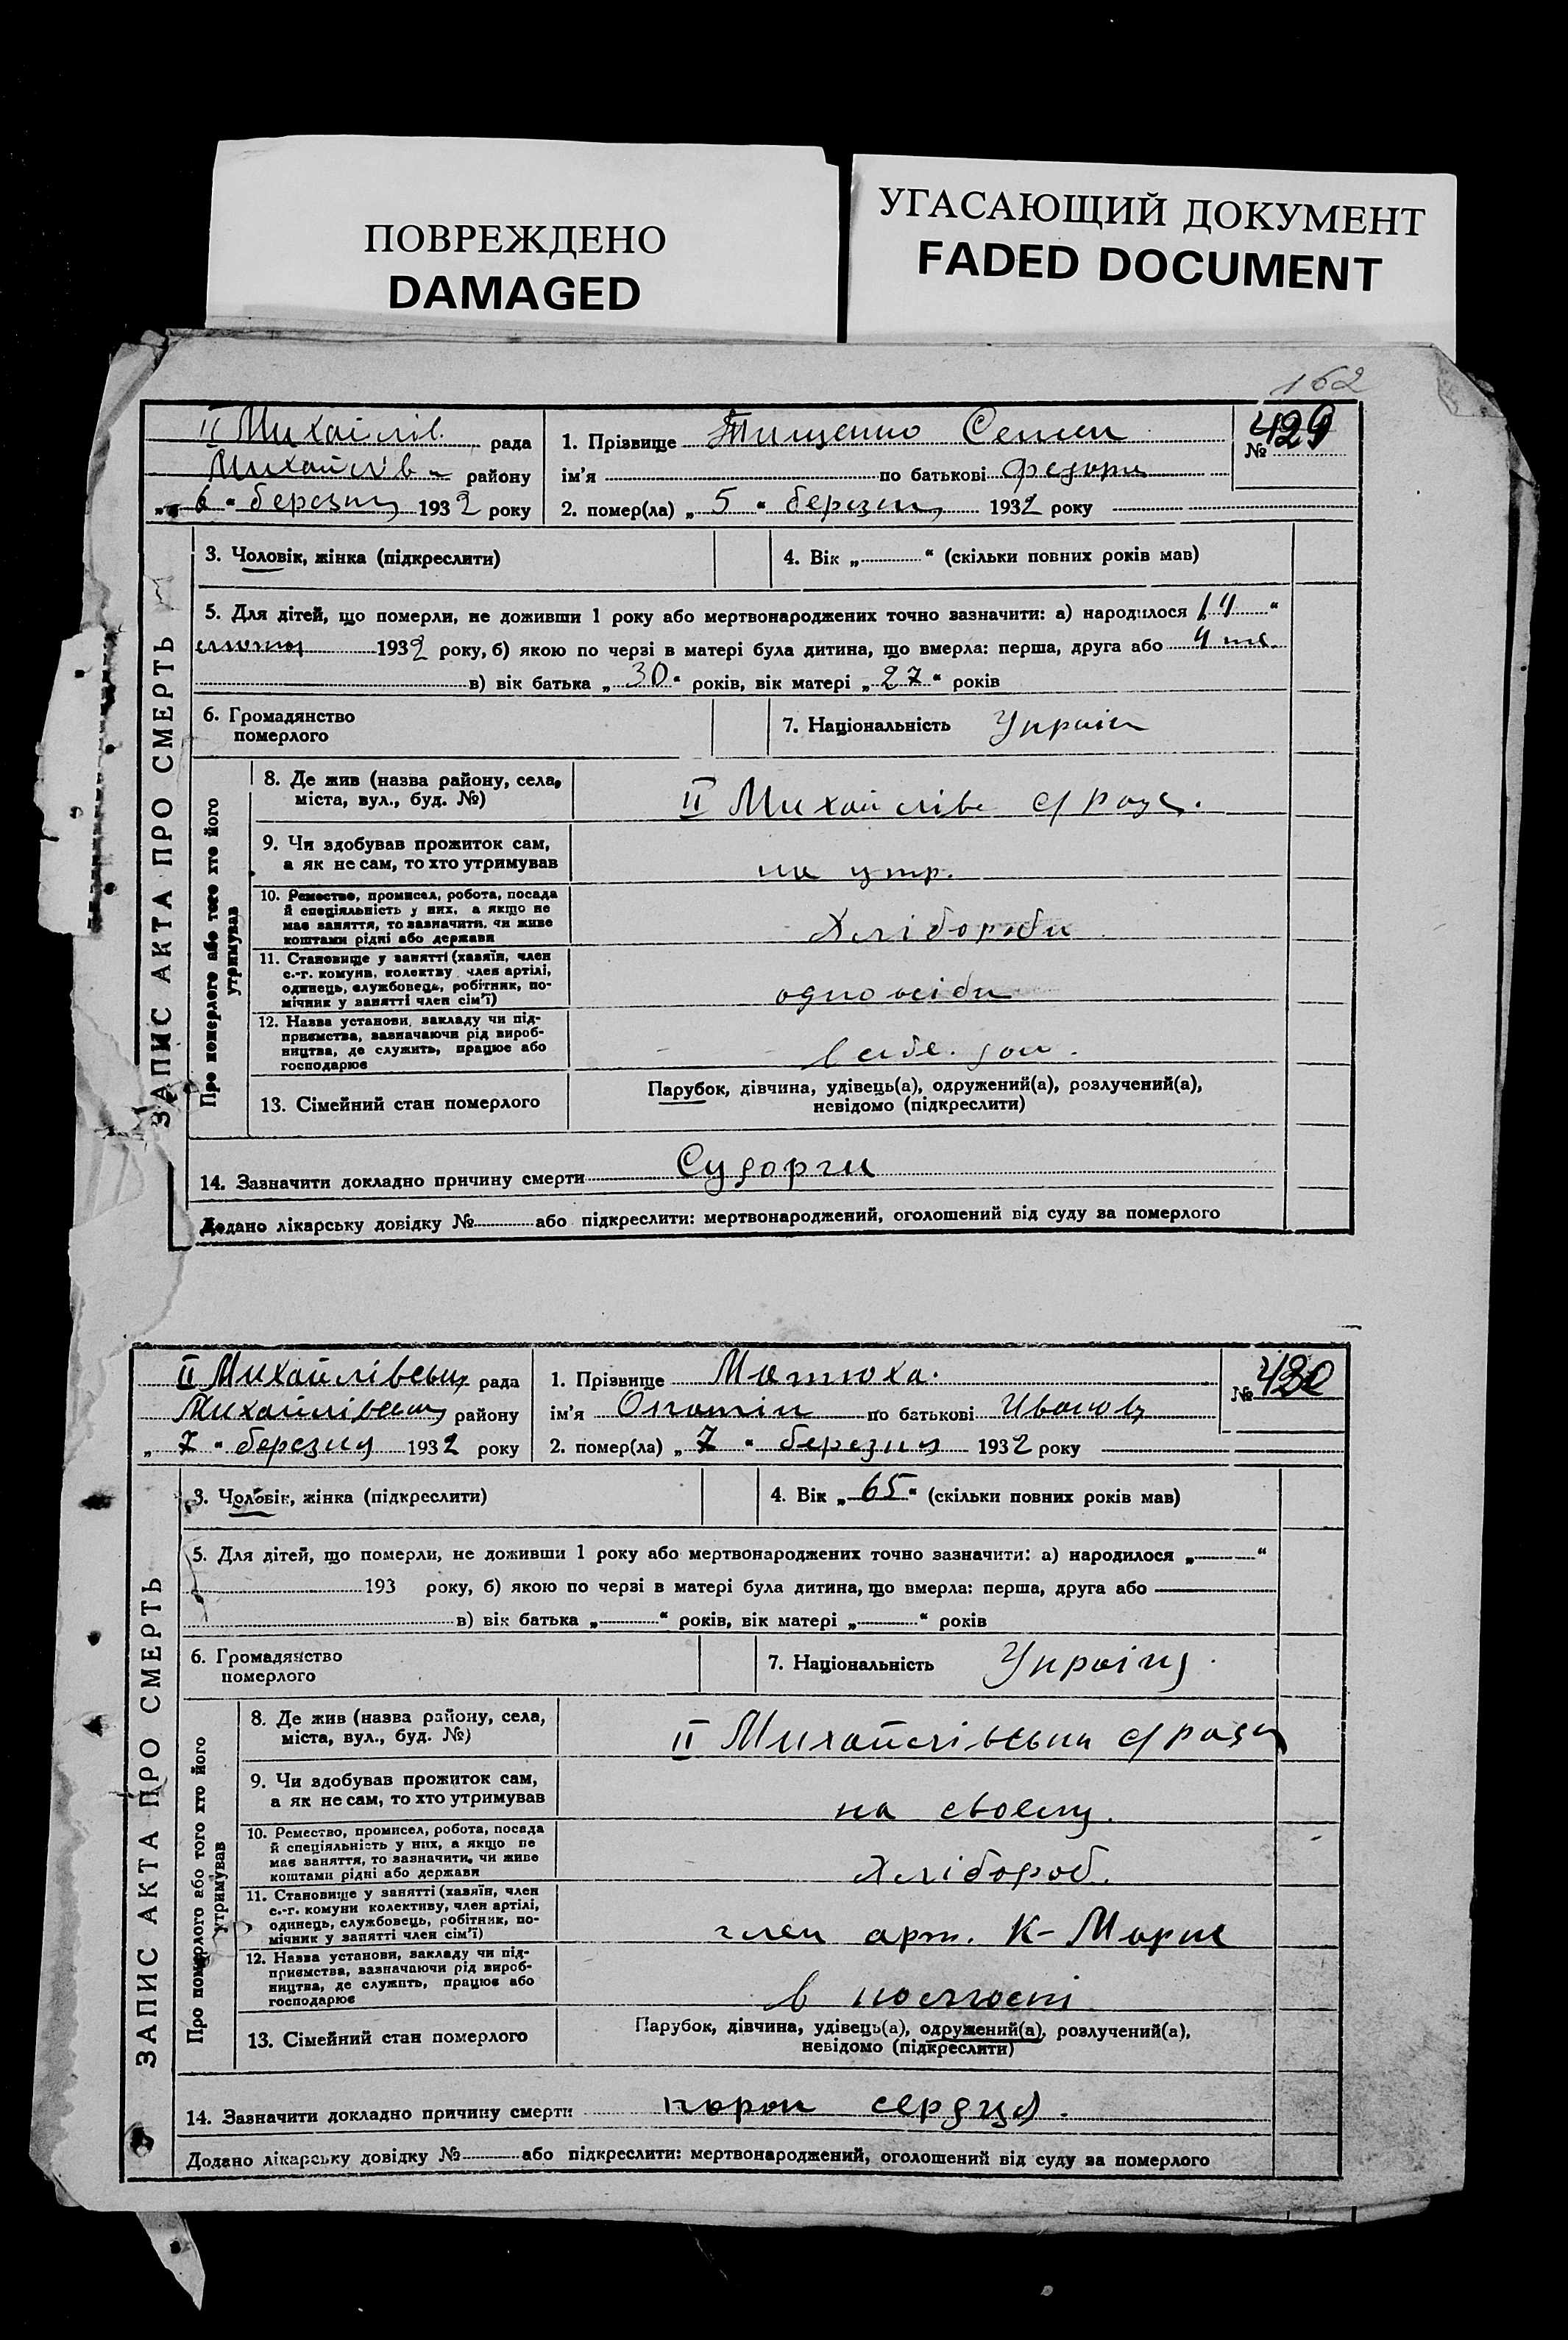 ПОВРЕЖДЕНО
DAMAGED
УГАСАЮЩИЙ ДОКУМЕНТ
FADED DOCUMENT
162
II Михайлів. рада
Михайлів района
"6" березня 1932 року
1. Прізвище Тищенко Семен
ім'я по батькові Федори
2. помер(ла) „5“ березня 1932 року
№ 429
ЗАПИС АКТА ПРО СМЕРТЬ
3. Чоловік, жінка (підкреслити)
4. Вік „ “ (скільки повних років мав)
5. Для дітей, що померли, не доживши 1 року або мертвонароджених точно зазначити: а) народилося 14 “
1932 року, б) якою по черзі в матері була дитина, що вмерла: перша, друга або 4
в) вік батька „30“ років, вік матері „27“ років
6. Громадянство
померлого
7. Національність Україн
Про померлого або того хто його
утримував
8. Де жив (назва району, села,
міста, вул., буд. №)
II Михайлівс с/рада.
9. Чи здобував прожиток сам,
а як не сам, то хто утримував
на утр.
10. Ремество, промисел, робота, посада
й спеціяльність у них, а якщо не
має заняття, то зазначити, чи живе
коштами рідні або держави
Хлібороби
11. Становище у занятті (хазяїн, член
с.-г. комуни, колективу, член артілі,
одинець, службовець, робітник, по-
мічник у занятті член сім'ї)
одноосібн
12. Назва установи, закладу чи під-
приємства, зазначаючи рід вироб-
ництва, де служить, працює або
господарює
13. Сімейний стан померлого
Парубок, дівчина, удівець(а), одружений(а), розлучений(а),
невідомо (підкреслити)
14. Зазначити докладно причину смерти Судорги
Додано лікарську довідку № або підкреслити: мертвонароджений, оголошений від суду за померлого
II Михайлівськ рада
Михайлівськ району
„7“ березня 1932 року
1. Прізвище Матюха.
ім'я по батькові Иванов
2. помер(ла) „7“ березня 1932 року
№ 430
ЗАПИС АКТА ПРО СМЕРТЬ
3. Чоловік, жінка (підкреслити)
4. Вік „65“ (скільки повних років мав)
5. Для дітей, що померли, не доживши 1 року або мертвонароджених точно зазначити: а) народилося „ “
193 року, б) якою по черзі в матері була дитина, що вмерла: перша, друга або
в) вік батька „ “ років, вік матері „ “ років
6. Громадянство
померлого
7. Національність Україн
Про померлого або того хто його
утримував
8. Де жив (назва району, села,
міста, вул., буд. №)
II Михайлівськи с/рада
9. Чи здобував прожиток сам,
а як не сам, то хто утримував
на своєму.
10. Ремество, промисел, робота, посада
й спеціяльність у них, а якщо не
має заняття, то зазначити, чи живе
коштами рідні або держави
Хлібороб.
11. Становище у занятті (хазяїн, член
с.-г. комуни колективу, член артілі,
одинець, службовець, робітник, по-
мічник у занятті член сім'ї)
член арт. К-Маркс
12. Назва установи, закладу чи під-
приємства, зазначаючи рід вироб-
ництва, де служить, працює або
господарює
в
13. Сімейний стан померлого
Парубок, дівчина, удівець(а), одружений(а), розлучений(а),
невідомо (підкреслити)
14. Зазначити докладно причину смерти порок сердця.
Додано лікарську довідку № або підкреслити: мертвонароджений, оголошений від суду за померлого